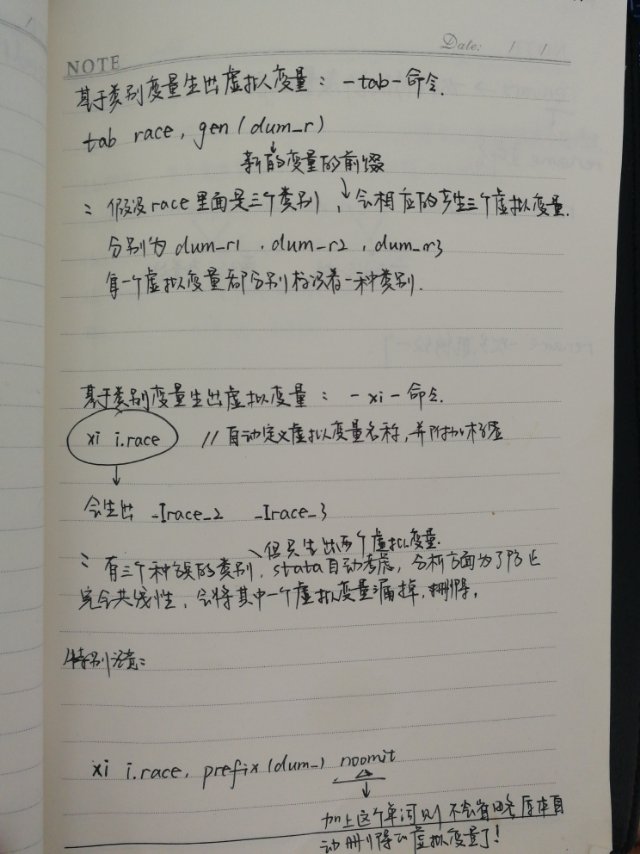 Date: / /
NOTE
基于类别变量生出虚拟变量: -tab-命令.
tab race, gen(dum_r)
新的变量的前缀
假设race里面是三个类别, 会相应的产生三个虚拟变量.
分别为 dum_r1 , dum_r2 , dum_r3
每一个虚拟变量都分别标识着一种类别.
基于类别变量生出虚拟变量: -xi-命令.
xi i.race //自动定义虚拟变量名称,并附加标签
会生出 _Irace_2 _Irace_3
但只生出两个虚拟变量.
有三个种族的类别, stata自动考虑, 分析方面为了防止
完全共线性, 会将其中一个虚拟变量漏掉, 删除,
特别注意:
xi i.race, prefix(dum_) noomit
加上这个单词则不会省略原本自
动删除的虚拟变量了!